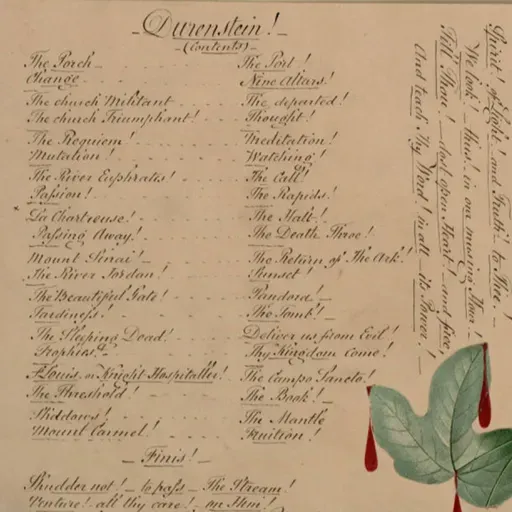 Durenstein!
(Contents)
The Porch . . . . . The Port!
Change . . . . . Nine Altars!
The church Militant . . . . The departed!
The church Triumphant! . . . . Thought!
The Requiem! . . . . Meditation!
Mutation! . . . . Watching!
The River Euphrates! . . . . The Call!
Passion! . . . . The Rapids!
La Chartreuse! . . . . The Halt!
Passing Away! . . . . The Death Throe!
Mount Sinai! . . . . The Return of The Ark!
The River Jordan! . . . . Sunset!
The Beautiful Gate! . . . . Pandora!
Tardiness! . . . . The Tomb!
The Sleeping Dead! . . . . Deliver us from Evil!
Trophies! . . . . Thy Kingdom Come!
St Louis or Knight Hospitaller! The Campo Santo!
The Threshold! . . . . The Book!
Shadows! . . . . The Mantle
Mount Carmel! . . . . Fruition!
Finis!
Shudder not! - to pass - The Stream!
Venture! - all thy care! - on Him!
Spirit! of Light! and Truth! to Thee!
We look! thus! in our musing Hour!
Till Thou! dost open Heart! and free,
And teach Thy Word! in all its Power!